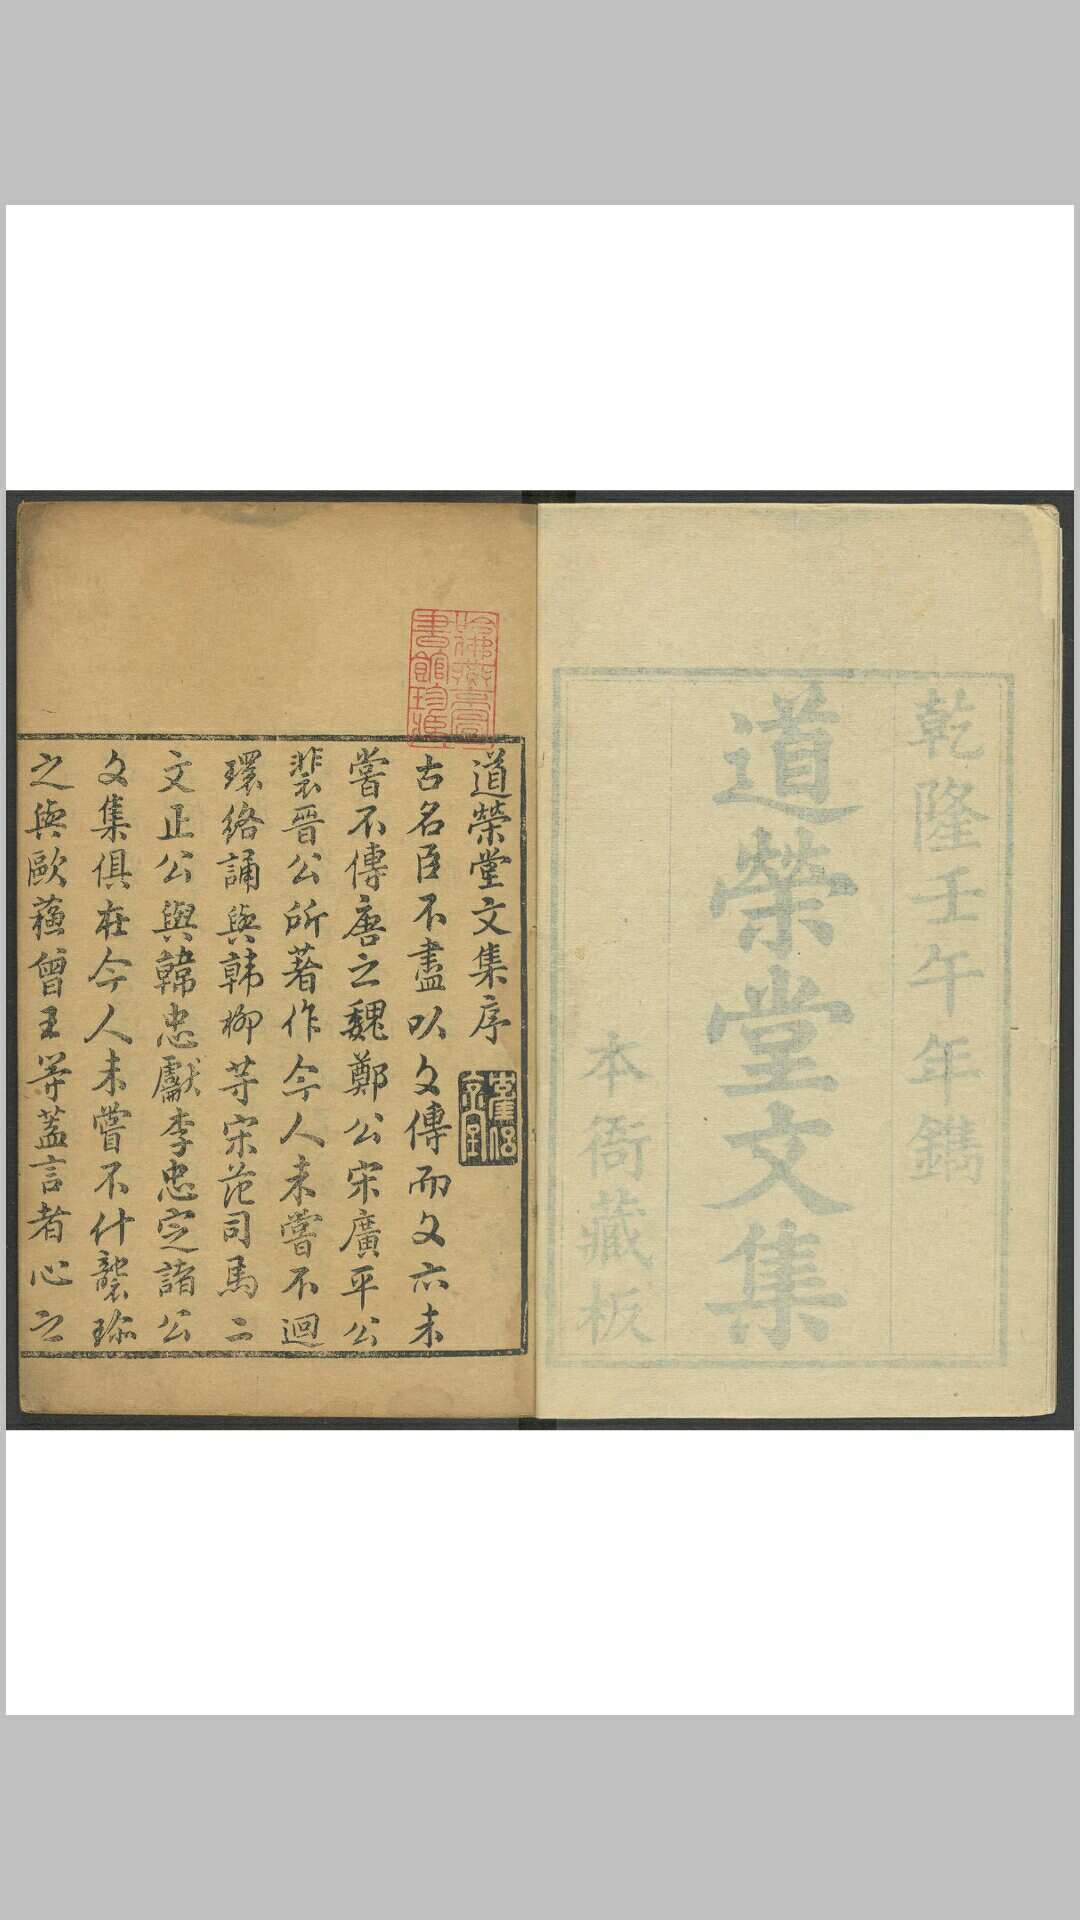 乾隆壬午年鐫
道榮堂文集
本衙藏板
道榮堂文集序
古名臣不盡以文傳而文亦未
嘗不傳唐之魏鄭公宋廣平公
裴晉公所著作今人未嘗不迴
環絡誦與韓柳等宋范司馬二
文正公與韓忠獻李忠定諸公
文集俱在今人未嘗不什襲珍
之與歐蘓曾王等蓋言者心之
哈佛燕京圖
書館珍藏